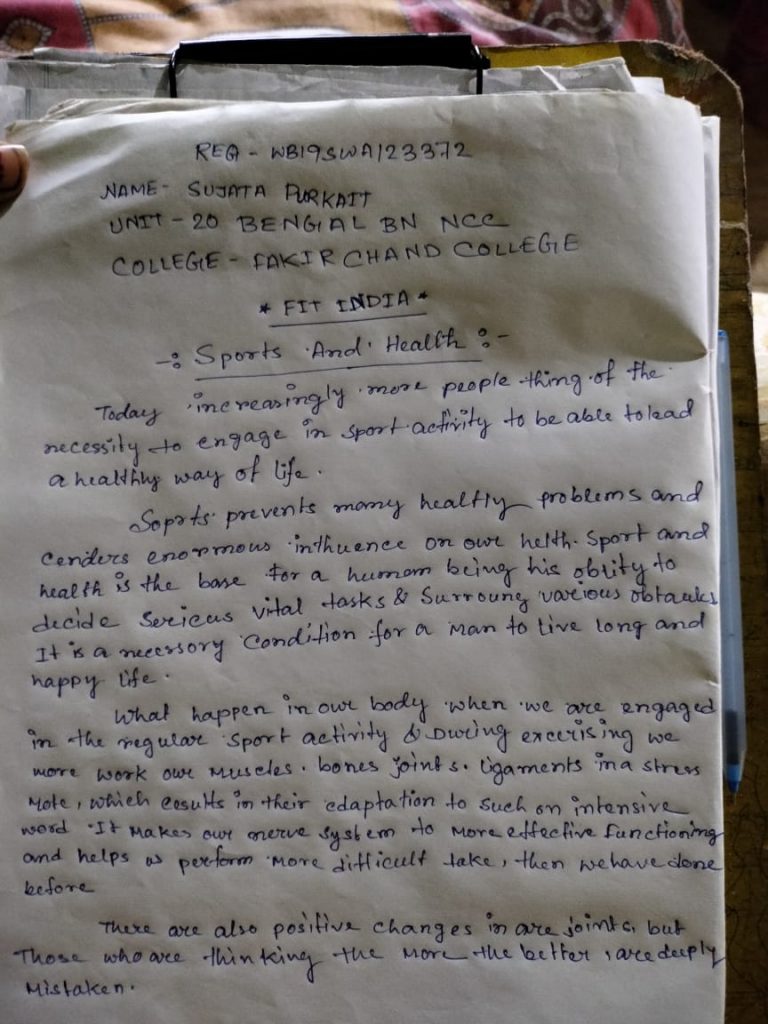 REG - WB19SWA123372
NAME - SUJATA PURKAIT
UNIT - 20 BENGAL BN NCC
COLLEGE - FAKIR CHAND COLLEGE
* FIT INDIA *
-: Sports And Health :-
Today increasingly more people thing of the
necessity to engage in sport activity to be able to lead
a healthly way of life.
Soprts prevents many healtly problems and
cenders enormous inthuence on our helth. Sport and
health is the base for a human being his oblity to
decide sericus vital tasks & Surroung various obtauks
It is a necessory condition for a man to live long and
happy life.
What happen in our body when we are engaged
in the regular sport activity & During excerising we
more work our muscles. bones joints. ligaments in a stress
mote, which cesults in their edaptation to such on intensive
word. It makes our nerve system to more effective functioning
and helps us perform more difficult take, then we have done
before
There are also positive changes in are joints, but
Those who are thinking the more the better, are deeply
Mistaken.